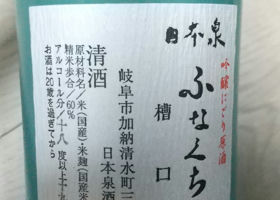 日本泉
吟醸にごり原酒
ふなくち
槽口
岐阜市加納清水町三
日本泉酒
清酒
原材料名／米（国産）・米麹（国産米
精米歩合／60%
アルコール分／十八度以上十九
お酒は20歳を過ぎてから